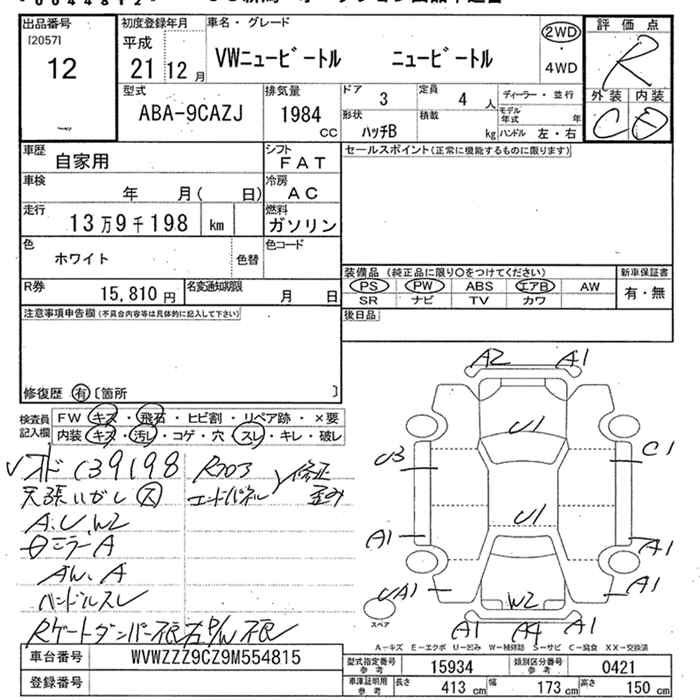 出品番号 初度登録年月 車名・グレード 評価点
[2057]
12
平成
21 12 月
VWニュービートル ニュービートル
2WD
・
4WD
R
外装 内装
C D
型式 排気量 ドア 定員 ディーラー・並行
ABA-9CAZJ 1984 cc
3 4 人
モデル年式 年
形状 積載
ハッチB kg
ハンドル 左・右
車歴 自家用
シフト FAT
セールスポイント(正常に機能するものに限ります)
車検 年 月( 日)
冷房 AC
走行 13万9千198 km
燃料 ガソリン
色 ホワイト 色替
色コード
R券 15,810 円
名変通知期限 月 日
装備品 (純正品に限り〇をつけてください) 新車保証書
PS PW ABS エアB AW
SR ナビ TV カワ
有・無
注意事項申告欄(不具合内容等は具体的に記入して下さい)
後日品
修復歴 有 〔箇所 〕
検査員記入欄
FW キズ・飛石・ヒビ割・リペア跡・×要
内装 キズ・汚レ・コゲ・穴・スレ・キレ・破レ
139198
A.U.W2
ミラーA
AW.A
ハンドルスレ
エンドパネル
A2 A1
U1
U3 C1
U1
A1 A1
UA1 A1
W2
スペア
A1 A4 A1
A―キズ E―エクボ U―凹み W―補修跡 S―サビ C―腐食 XX―交換済
車台番号 WVWZZZ9CZ9M554815
登録番号
型式指定番号 参考 15934
類別区分番号 参考 0421
車庫証明用 参考 長さ 413 cm 幅 173 cm 高さ 150 cm